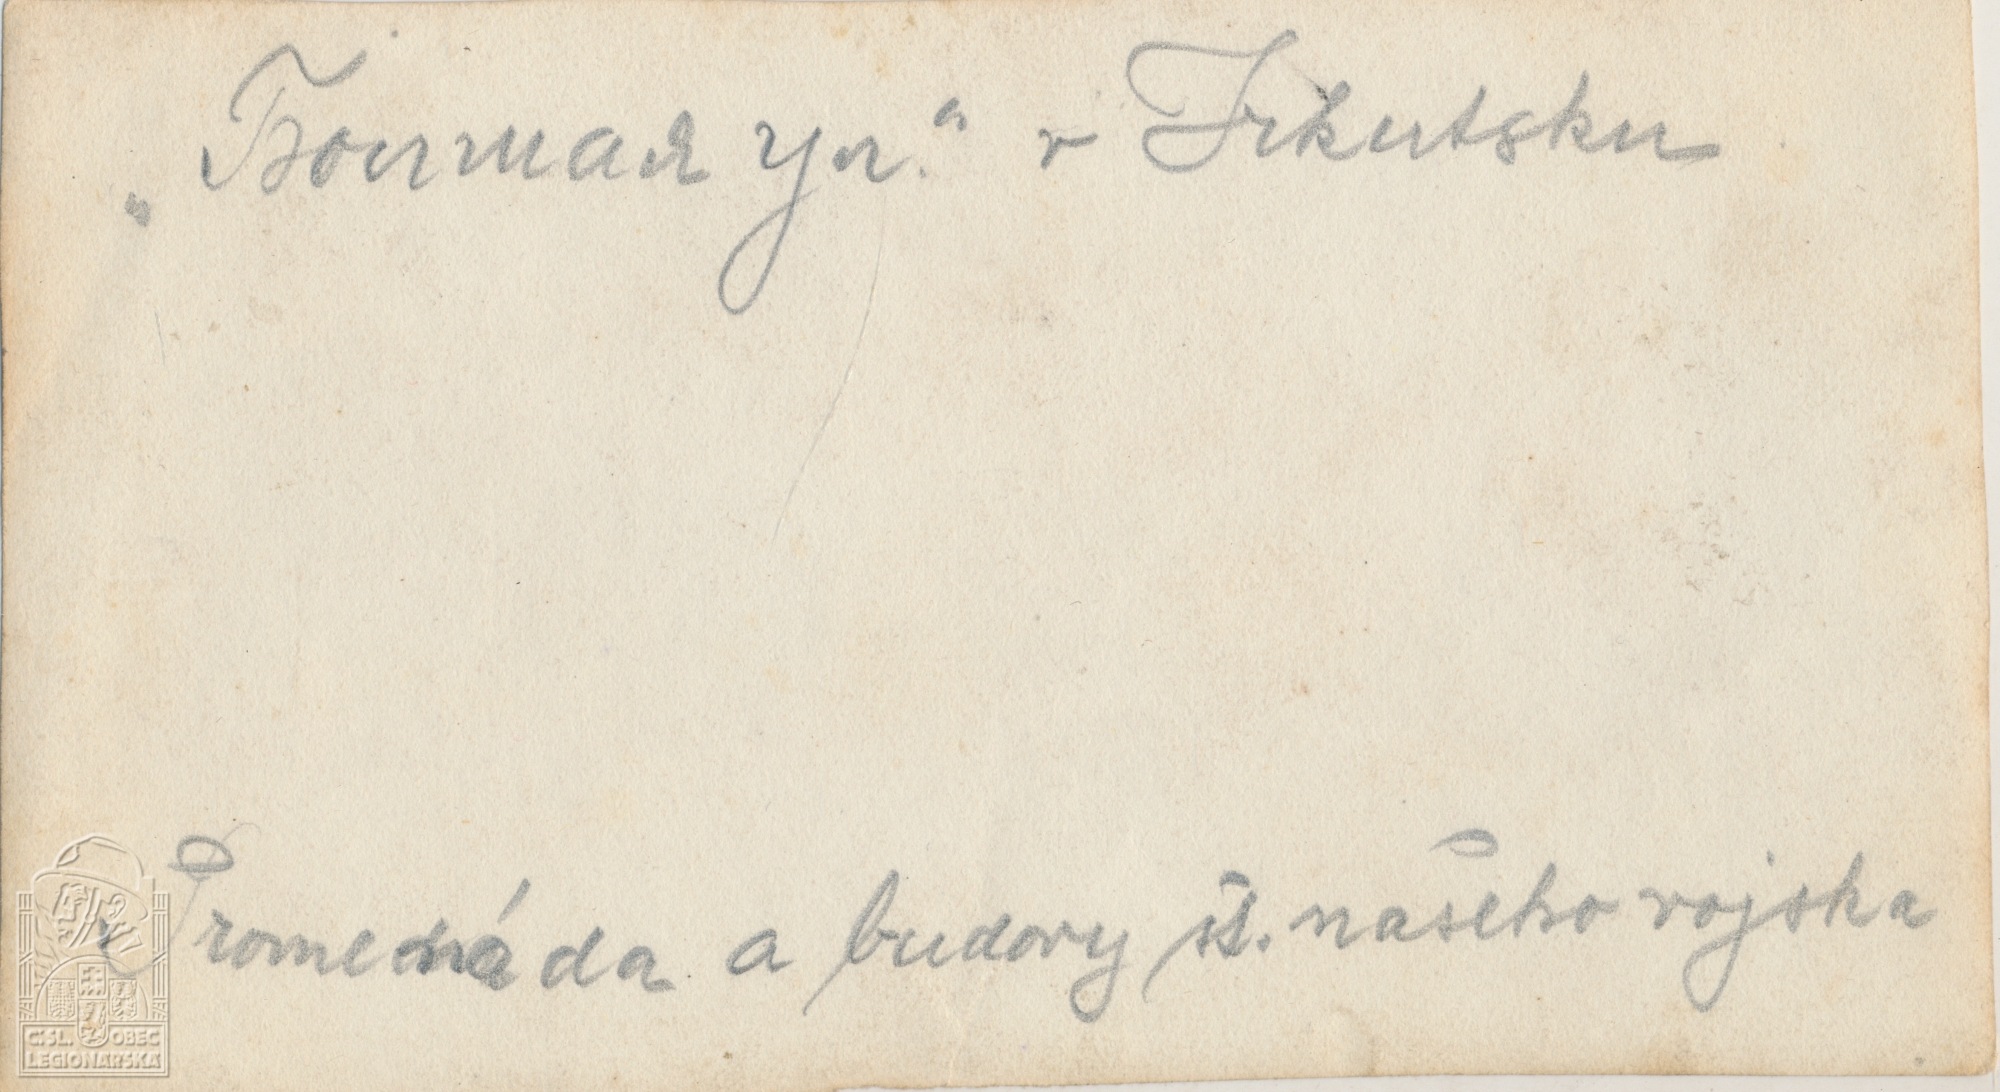 „Болшая ул.“ v Irkutsku
Promenáda a budovy št. našeho vojska
Č.SL. OBEC
LEGIONÁŘSKÁ